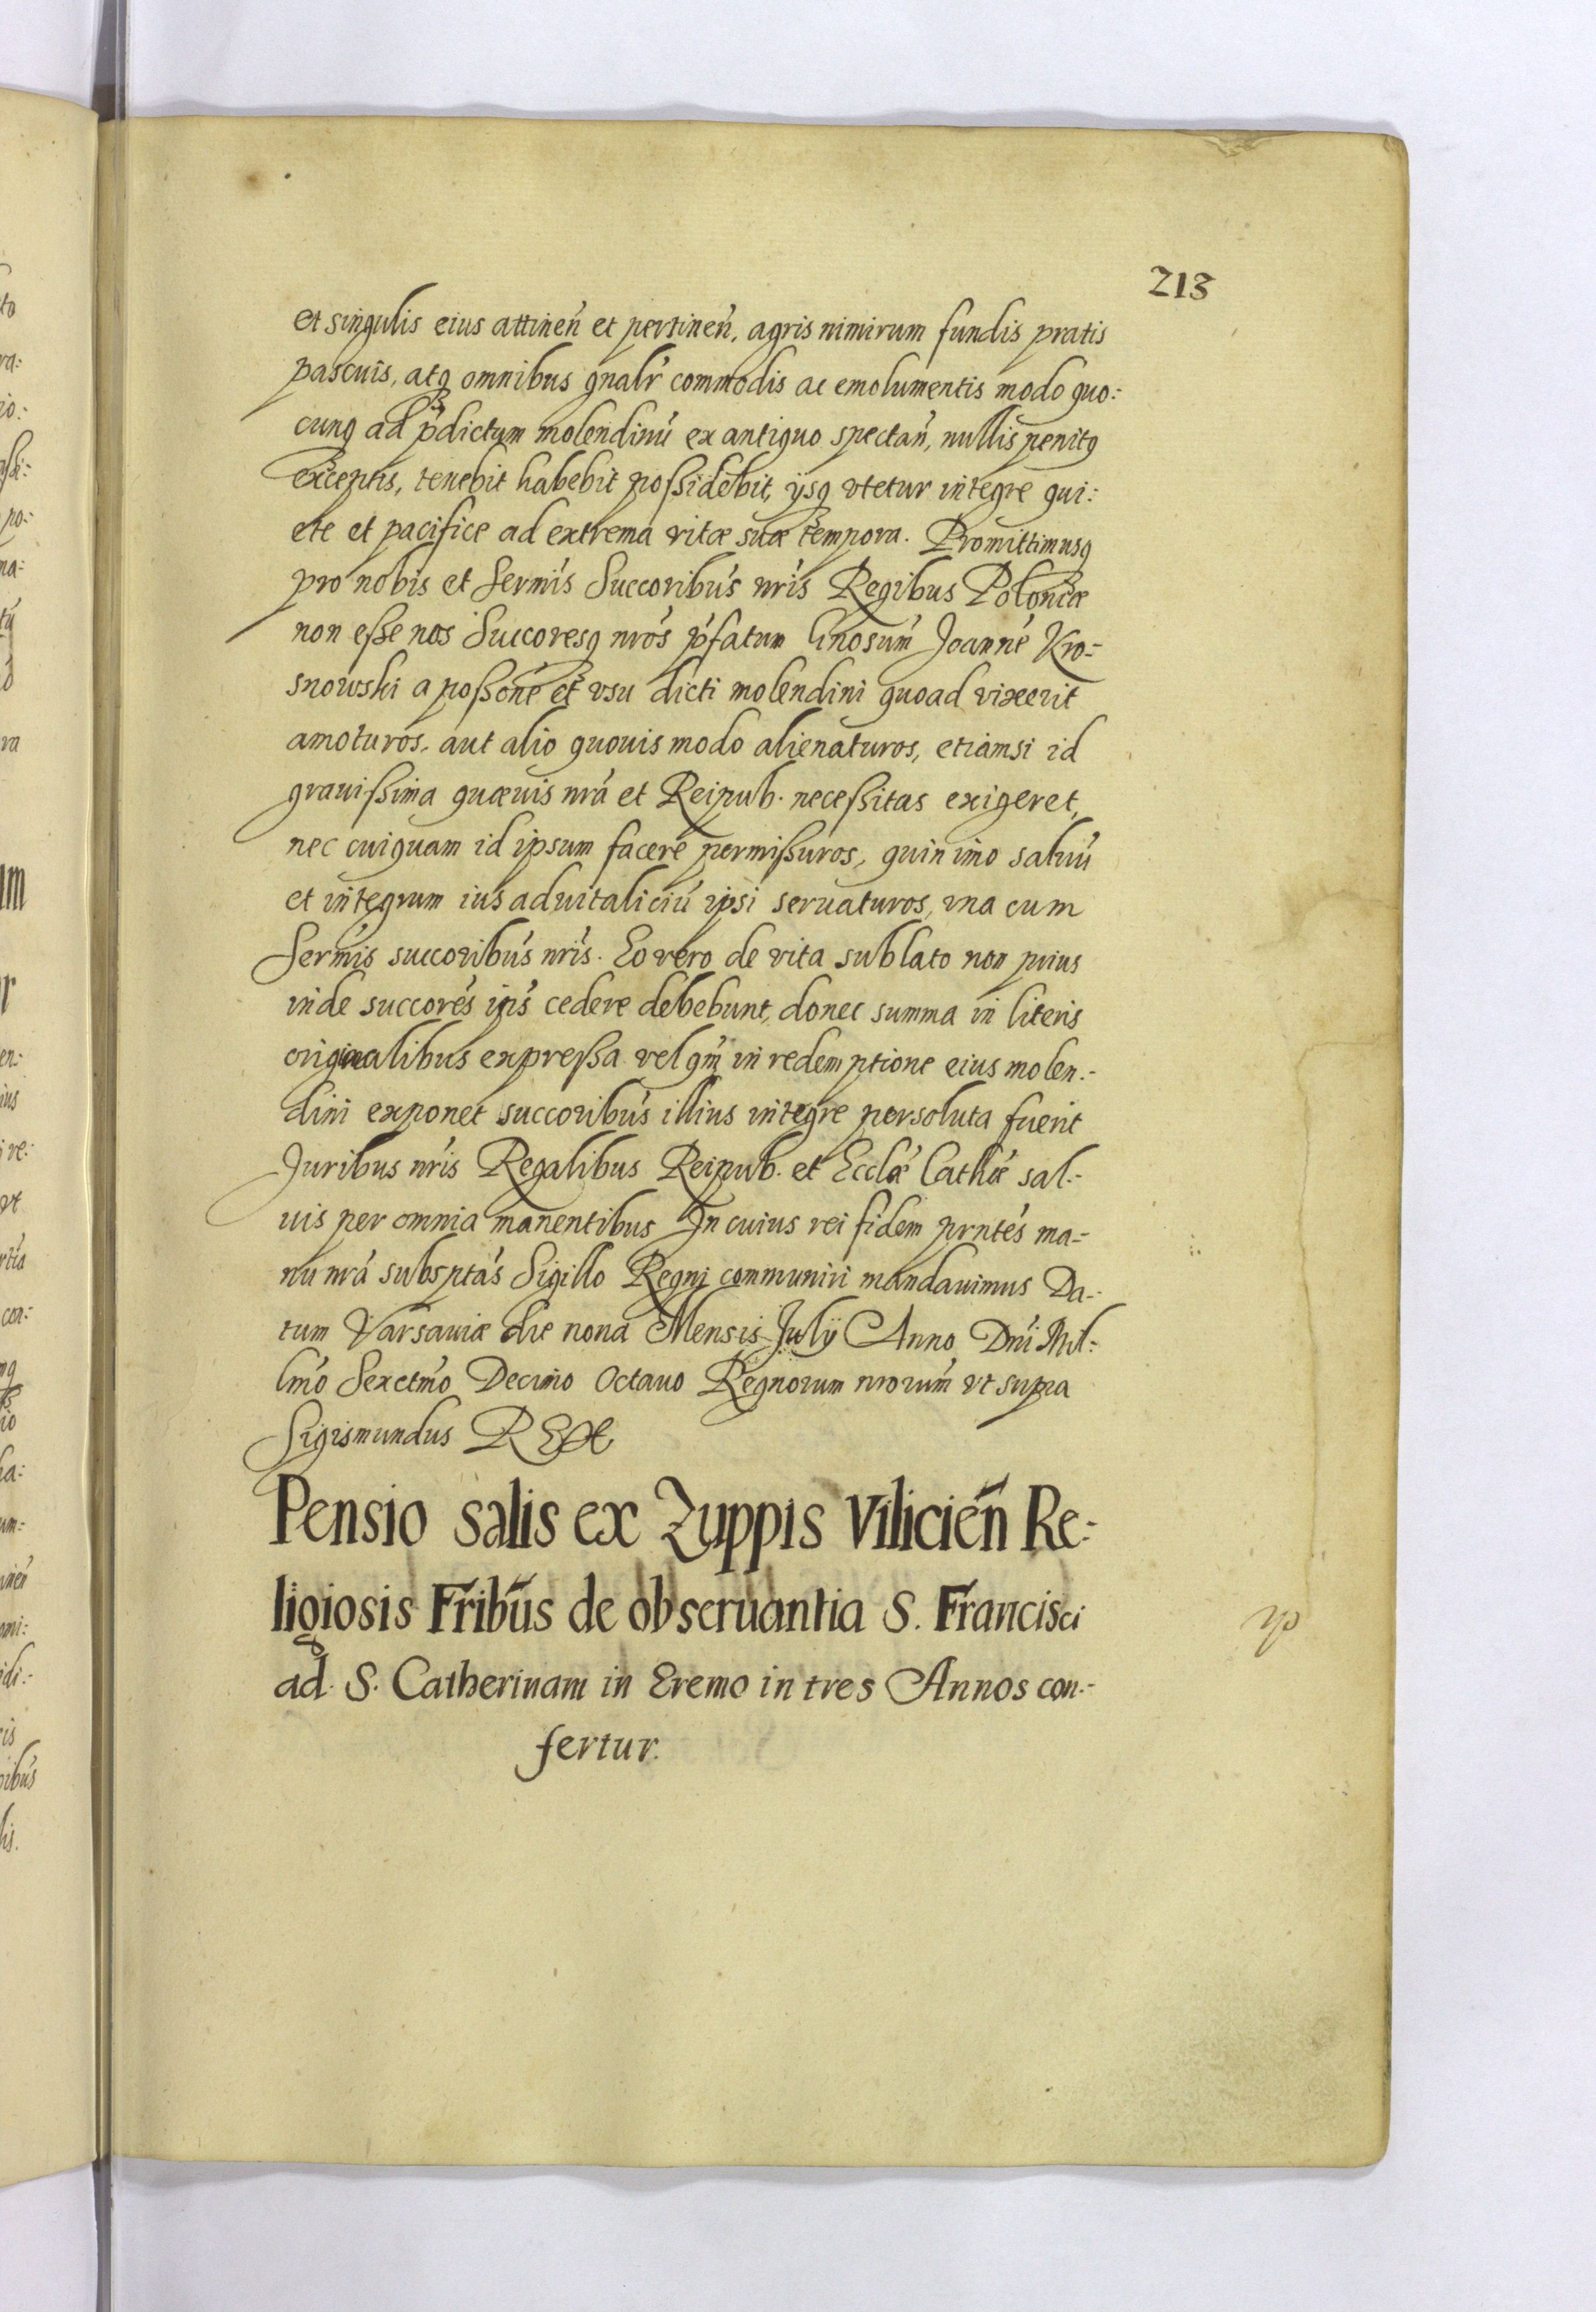 213
et singulis eius attineń et pertineń, agris nimirum fundis pratis
pascuis, atq omnibus gnalr commodis ac emolumentis modo quo:
cunq ad pdictum molendinú ex antiquo spectań, nullis penitq
exceptis, tenebit habebit poßidebit, ijsq vtetur integre qui:
ete et pacifice ad extrema vitæ suæ tempora. Promittimusq
pro nobis et Sermis Succoribus nris Regibus Poloniæ
non eße nos Succoresq nros pfatum Gnosum Joanne Kro-
snowski a poßone et vsu dicti molendini quoad vixerit
amoturos, aut alio quouis modo alienaturos, etiamsi id
grauißima quæuis nra et Reipub. neceßitas exigeret,
nec cuiquam id ipsum facere permißuros, quin imo saluú
et integrum ius aduitaliciú ipsi seruaturos, vna cum
Sermis succoribus nris. Eo vero de vita sublato non prius
inde succores ipś cedere debebunt, donec summa in literis
originalibus expreßa vel qm in redemptione eius molen-
dini exponet succoribus illius integre persoluta fuerit
Juribus nris Regalibus Reipub. et Ecclæ Cathæ sal-
uis per omnia manentibus In cuius rei fidem prntes ma-
nu nra subsptas Sigillo Regni communiri mandauimus Da-
tum Varsauiæ die nona Mensis Julij Anno Dni Mil-
lmo Sexctmo Decimo Octauo Regnorum nrorum vt supra
Sigismundus REX
Pensio salis ex Zuppis Vilicień Re-
ligiosis Fribus de obseruantia S. Francisci
ad S. Catherinam in Eremo in tres Annos con-
fertur.